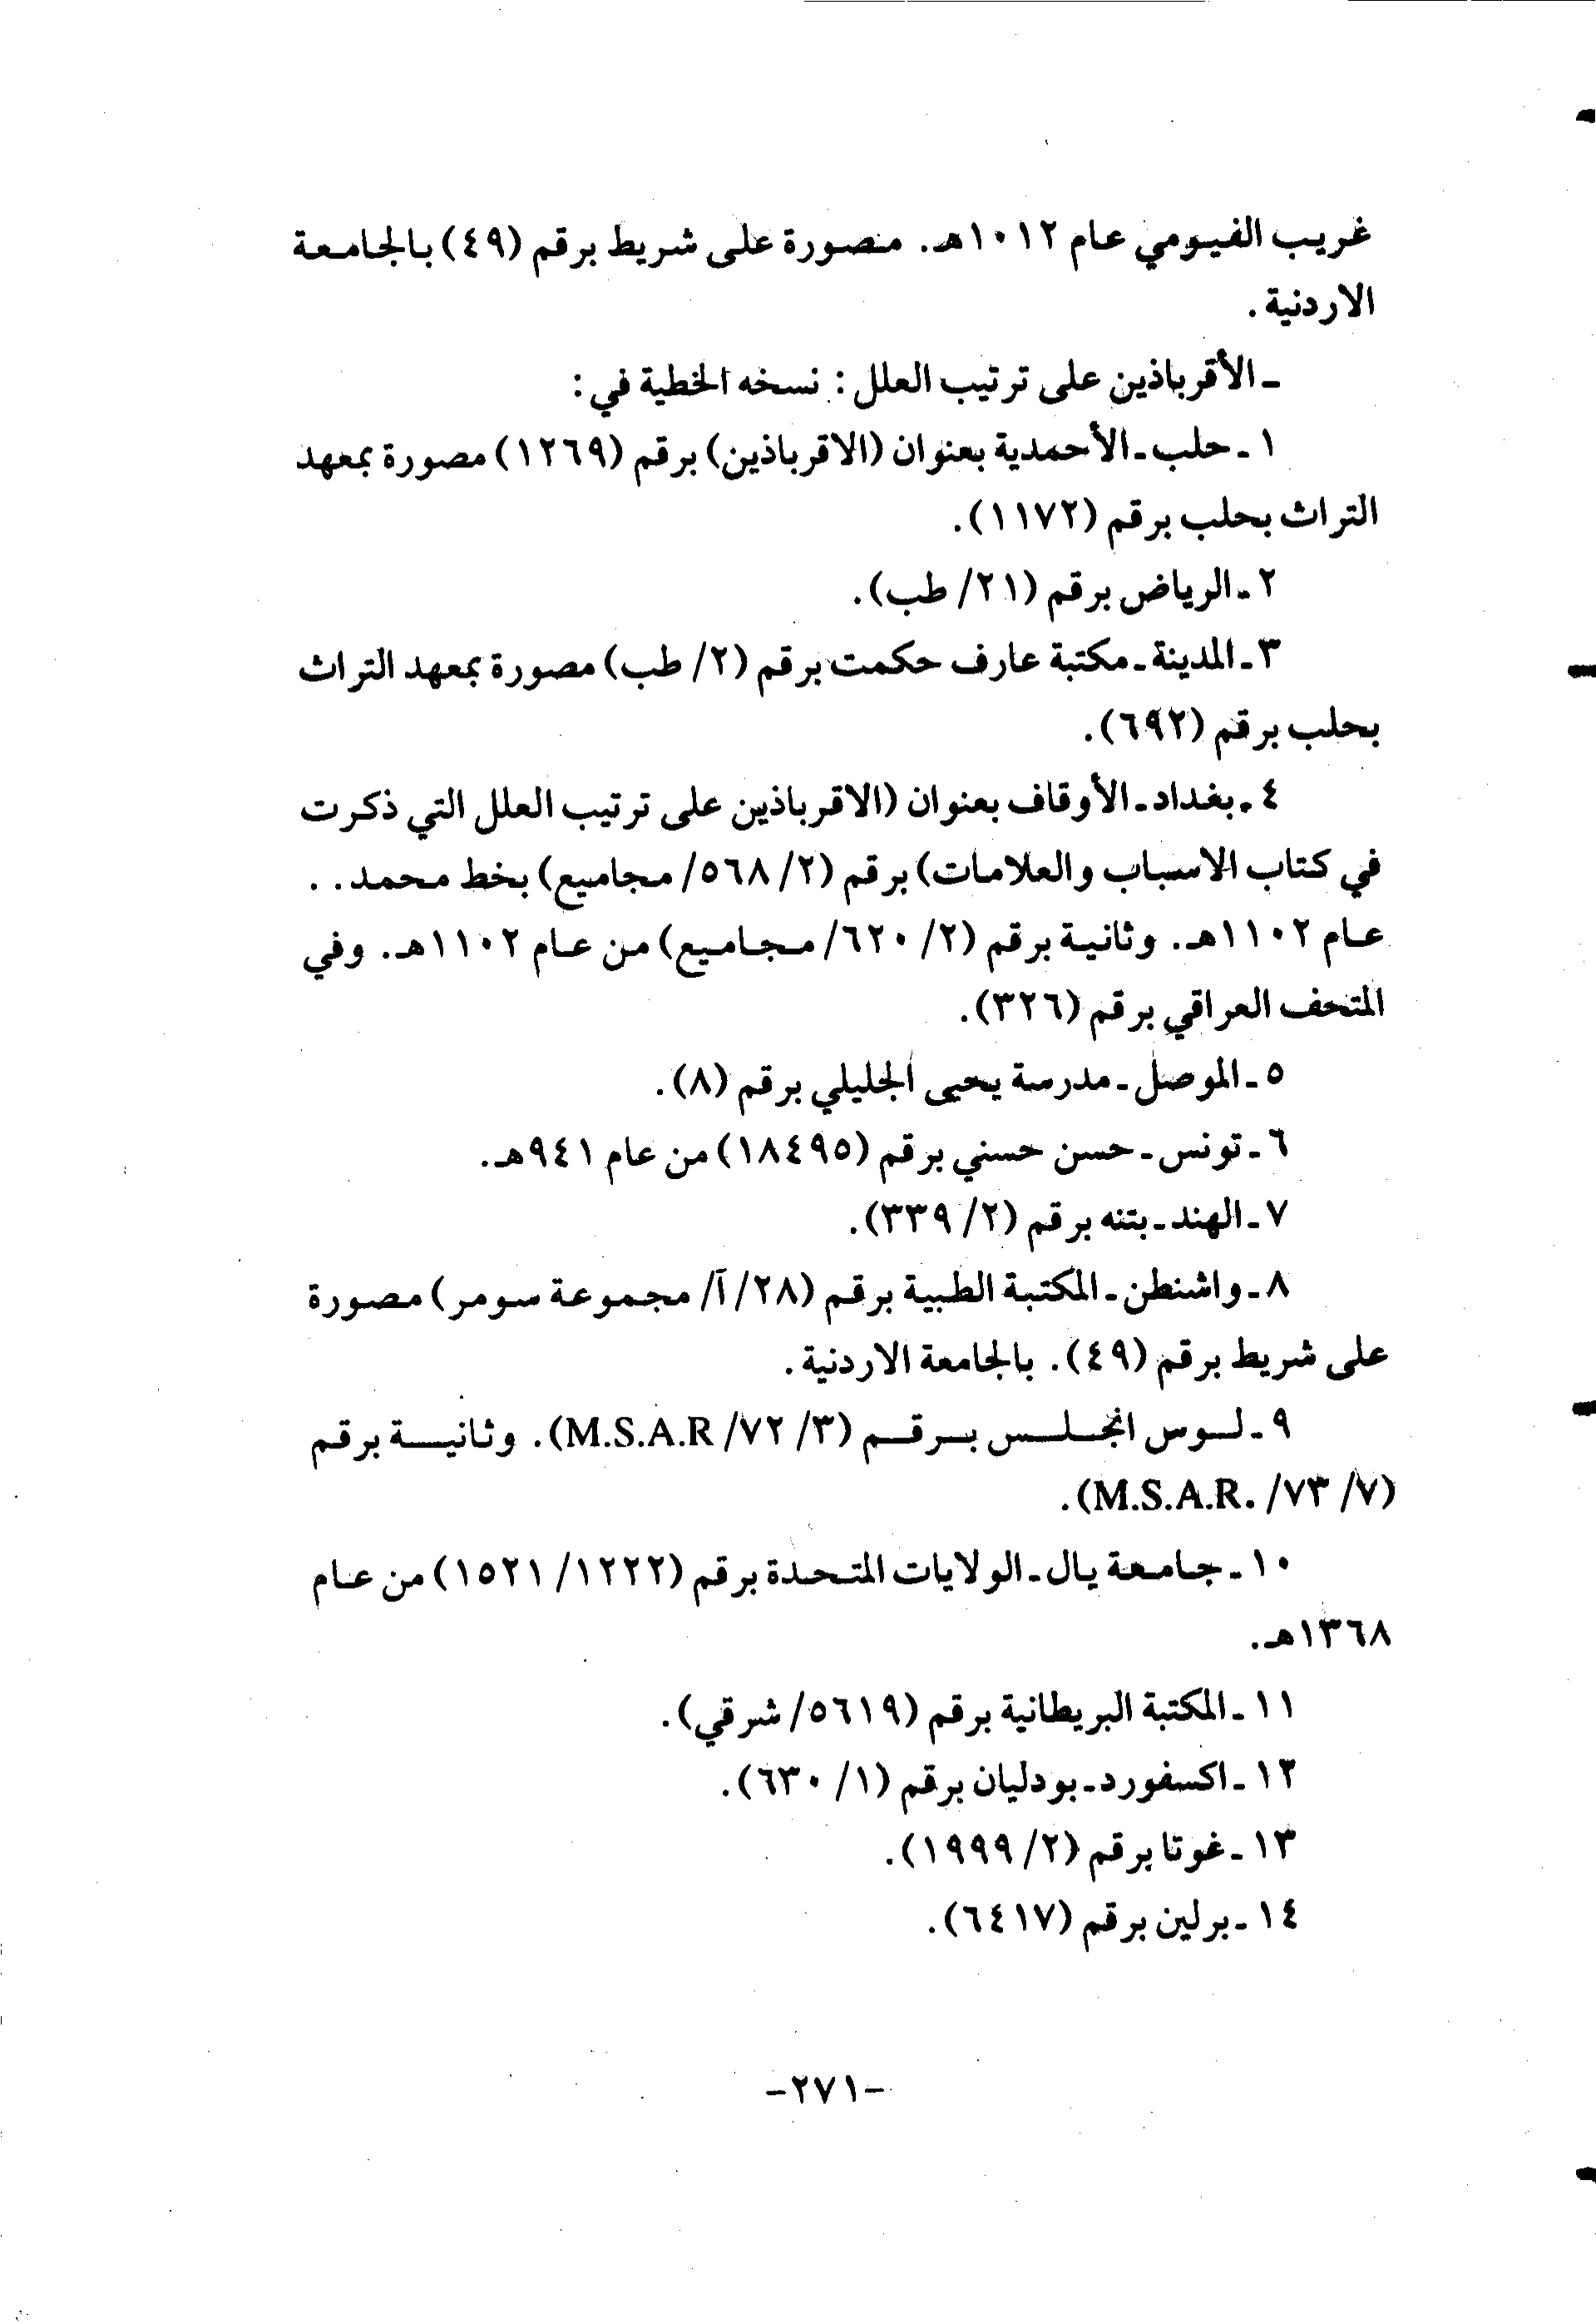 غريب الفيومي عام ١٠١٢هـ. منصورة على شريط برقم (٤٩) بالجامعة
الاردنية.
ـ الأقرباذين على ترتيب العلل: نسخه الخطية في:
١ ـ حلب ـ الأحمدية بعنوان (الاقرباذين) برقم (١٢٦٩) مصورة بمعهد
التراث بحلب برقم (١١٧٢).
٢ ـ الرياض برقم (٢١/ طب).
٣ ـ المدينة ـ مكتبة عارف حكمت برقم (٢/ طب) مصورة بمعهد التراث
بحلب برقم (٦٩٢).
٤ ـ بغداد ـ الأوقاف بعنوان (الاقرباذين على ترتيب العلل التي ذكرت
في كتاب الاسباب والعلامات) برقم (٢/ ٥٦٨/ مجاميع) بخط محمد..
عام ١١٠٢هـ. وثانية برقم (٢/ ٦٢٠/ مجاميع) من عام ١١٠٢هـ. وفي
المتحف العراقي برقم (٣٢٦).
٥ ـ الموصل ـ مدرسة يحيى الجليلي برقم (٨).
٦ ـ تونس ـ حسن حسني برقم (١٨٤٩٥) من عام ٩٤١هـ.
٧ ـ الهند ـ بتنه برقم (٢/ ٣٣٩).
٨ ـ واشنطن ـ المكتبة الطبية برقم (٢٨/ آ/ مجموعة سومر) مصورة
على شريط برقم (٤٩). بالجامعة الاردنية.
٩ ـ لوس انجلس برقم (٣/ ٧٢/ M.S.A.R). وثانية برقم
(٧/ ٧٣/ M.S.A.R.).
١٠ ـ جامعة يال ـ الولايات المتحدة برقم (١٢٢٢/ ١٥٢١) من عام
١٣٦٨هـ.
١١ ـ المكتبة البريطانية برقم (٥٦١٩/ شرقي).
١٢ ـ اكسفورد ـ بودليان برقم (١/ ٦٣٠).
١٣ ـ غوتا برقم (٢/ ١٩٩٩).
١٤ ـ برلين برقم (٦٤١٧).
-٢٧١-